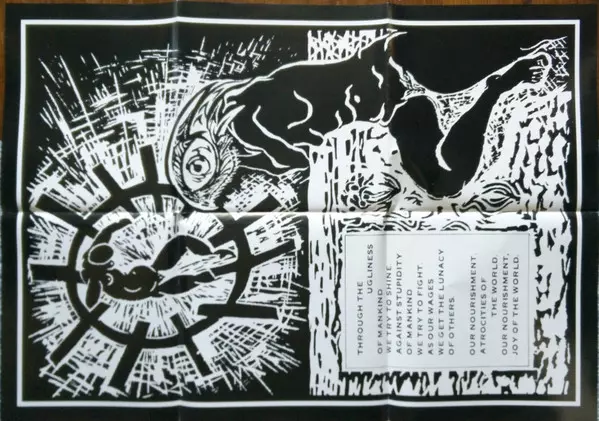 THROUGH THE
UGLINESS
OF MANKIND
WE TRY TO SHINE
AGAINST STUPIDITY
OF MANKIND
WE TRY TO FIGHT.
AS OUR WAGES
WE GET THE LUNACY
OF OTHERS.
OUR NOURISHMENT:
ATROCITIES OF
THE WORLD.
OUR NOURISHMENT;
JOY OF THE WORLD.